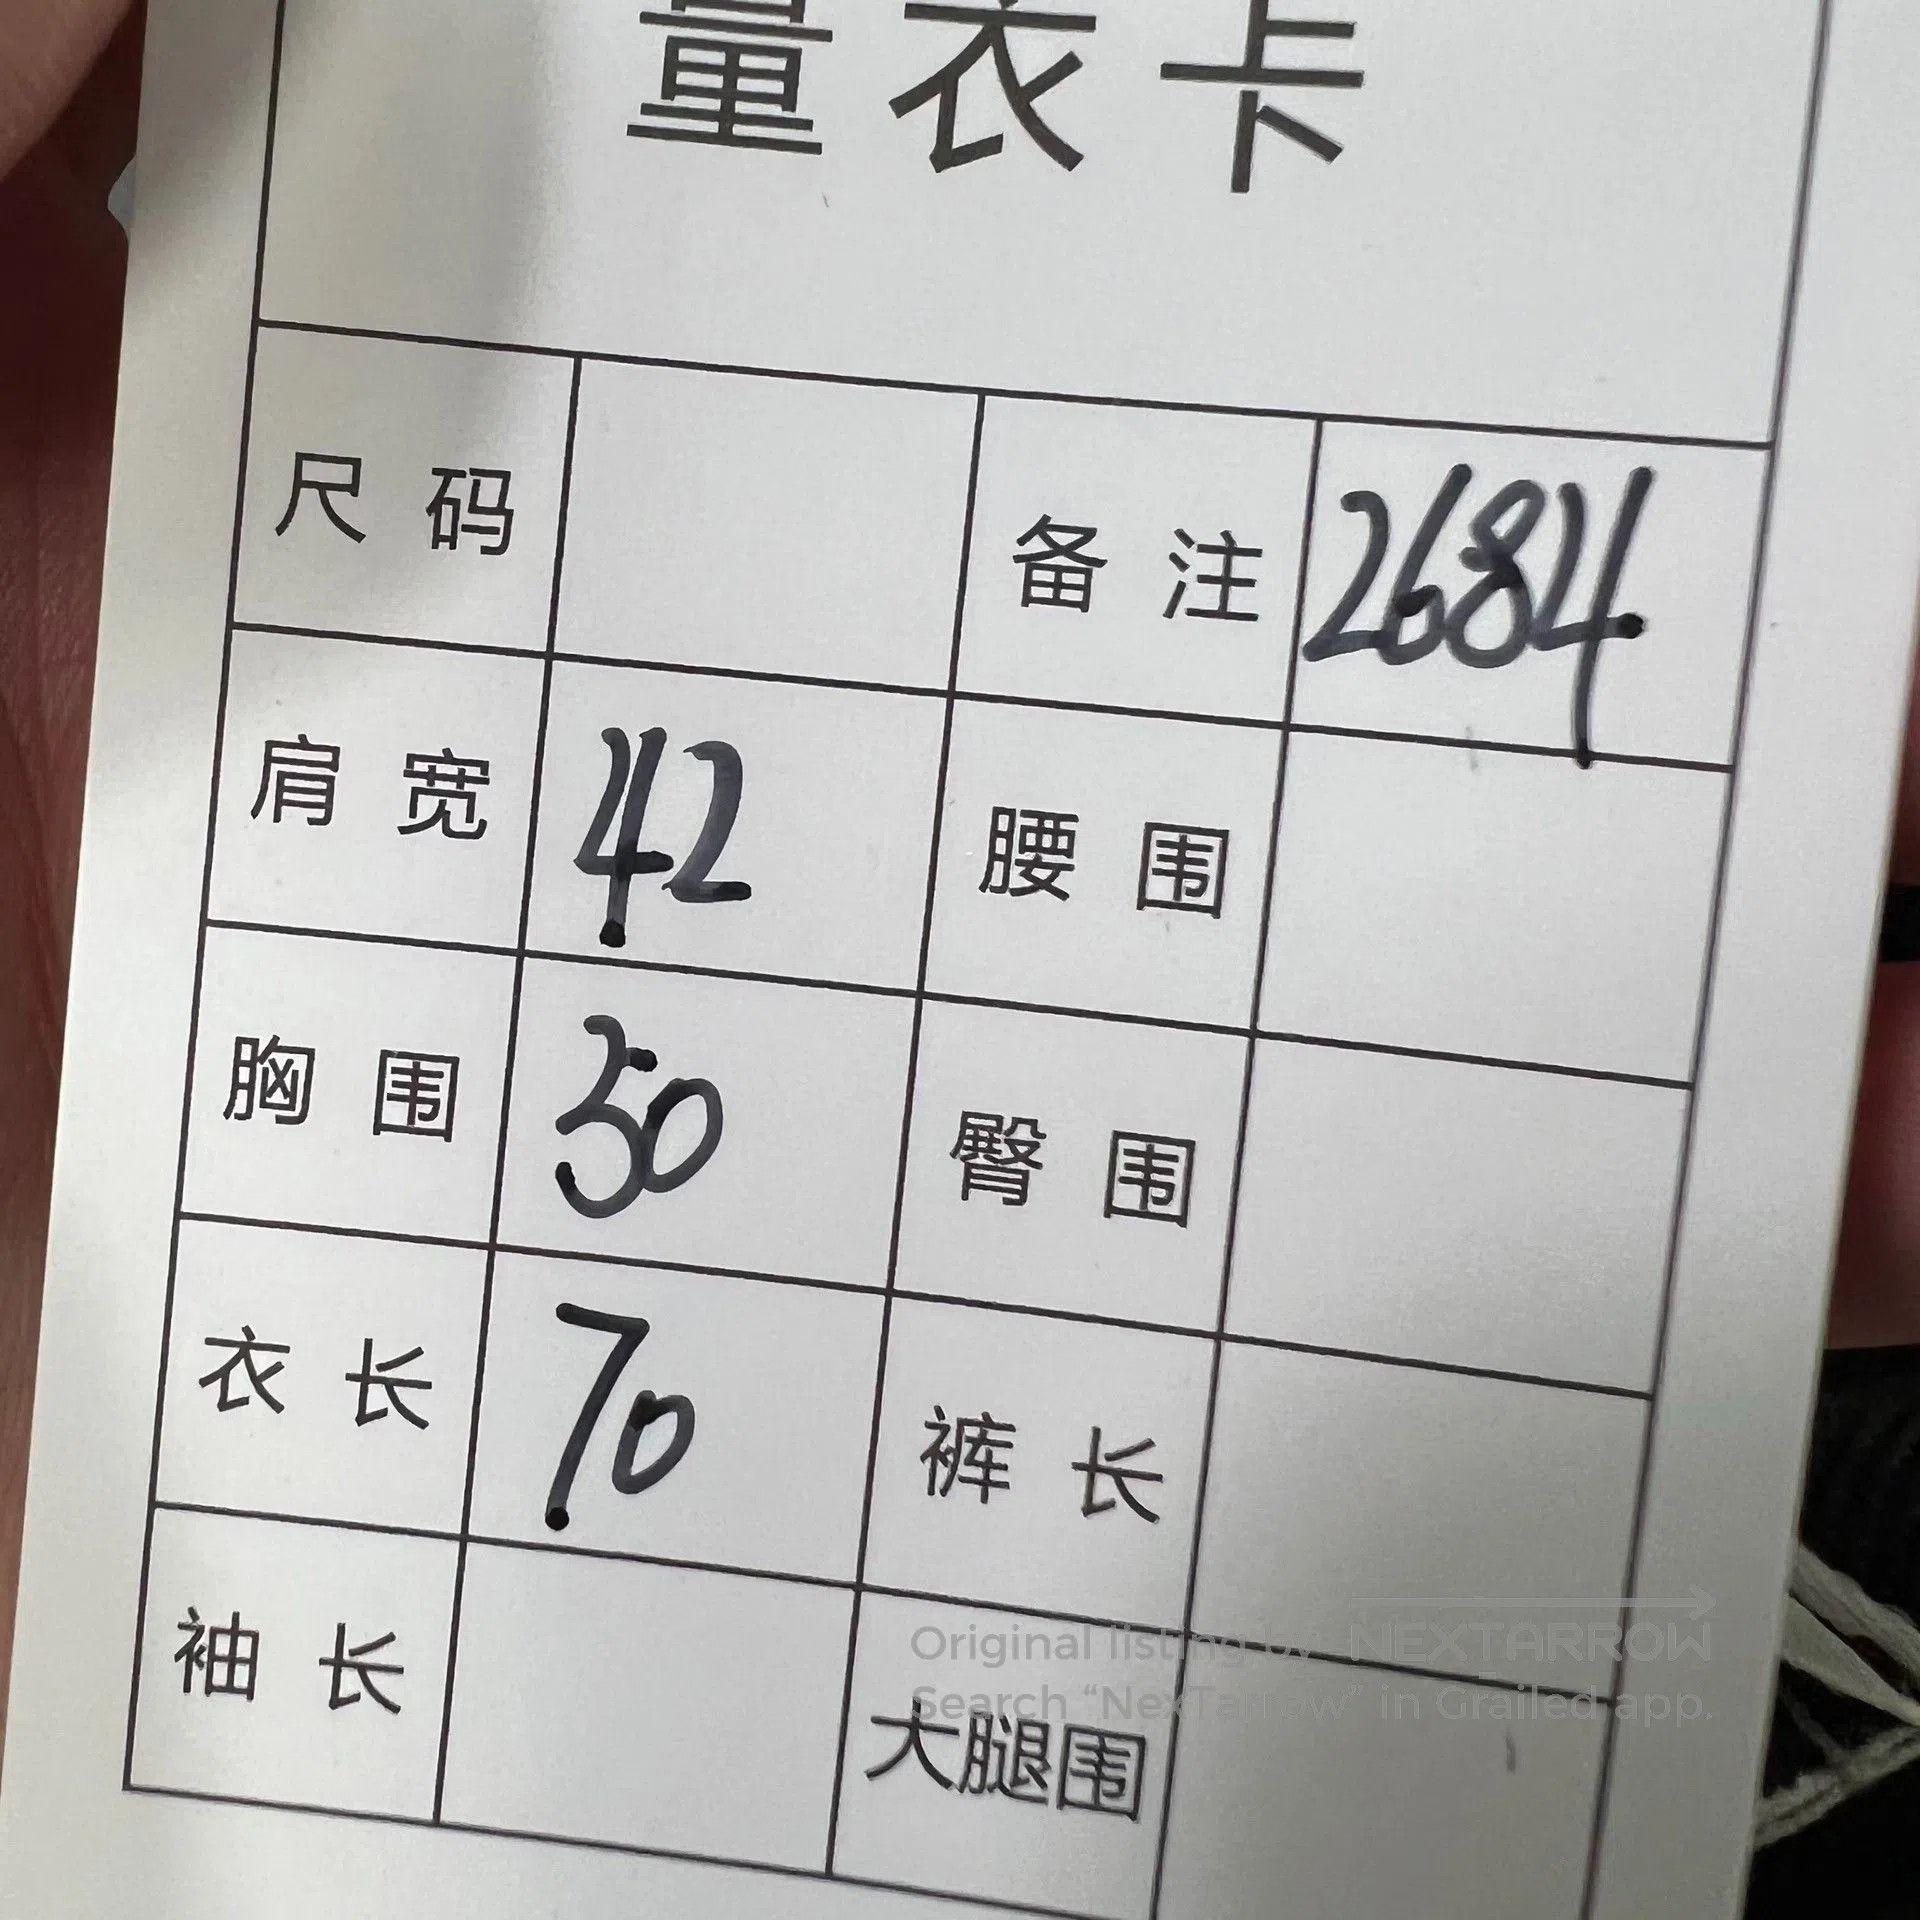 量衣卡
尺码 备注 2684
肩宽 42 腰围
胸围 50 臀围
衣长 70 裤长
袖长 大腿围
Original listing by NEXTARROW
Search “NexTarrow” in Grailed app.